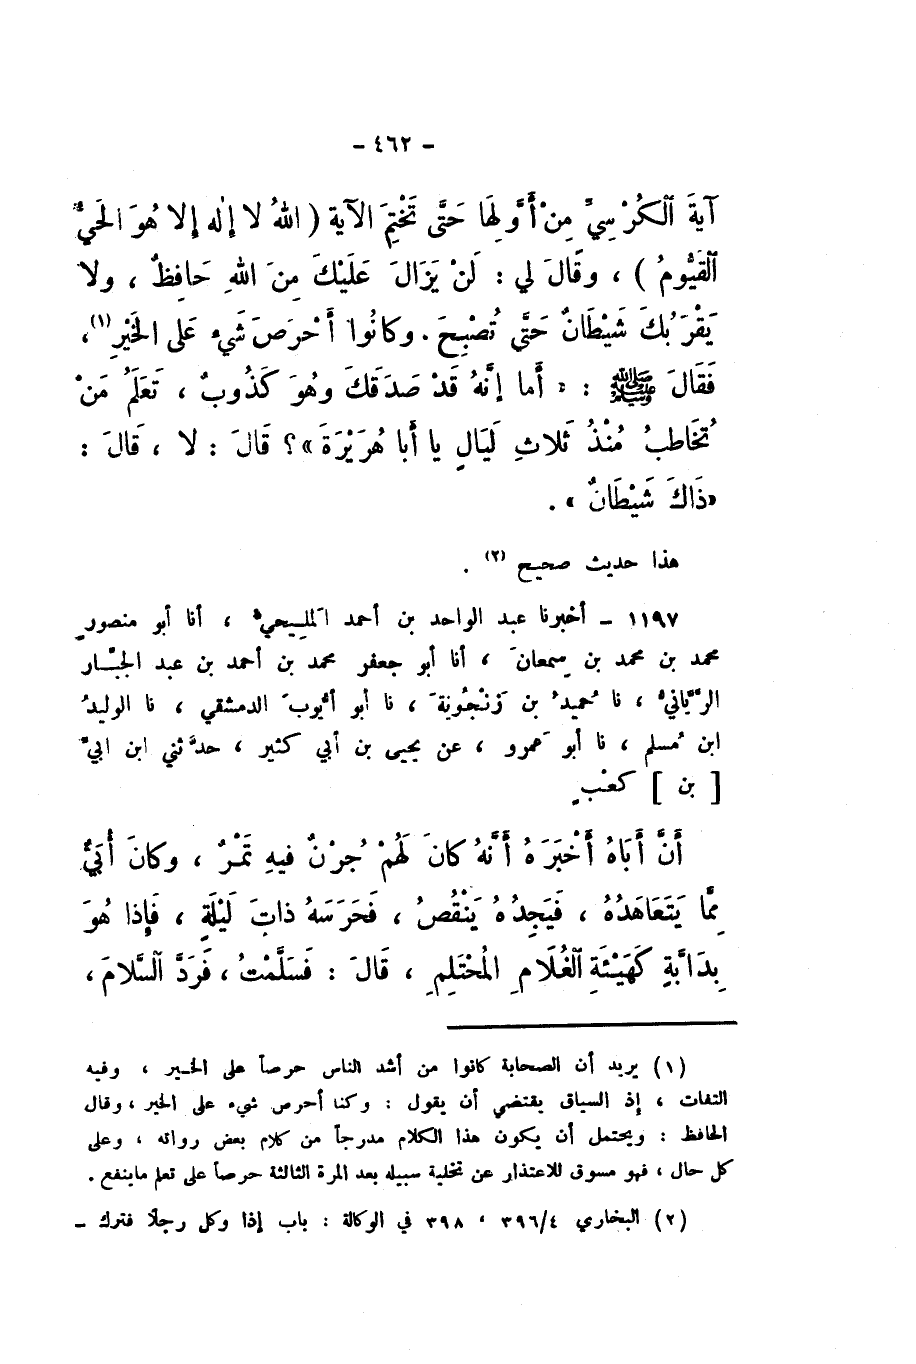 - ٤٦٢ -
آيةَ ٱلكُرْسِيِّ مِنْ أَوَّلِهَا حَتَّى تَخْتِمَ الآيةَ ( اللهُ لا إِلٰه إِلا هُوَ الحَيُّ
ٱلْقَيُّومُ ) ، وقَالَ لي : لَنْ يَزَالَ عَلَيْكَ مِنَ اللهِ حَافِظٌ ، ولا
يَقْرَبُكَ شَيْطَانٌ حَتَّى تُصْبِحَ . وكانُوا أَحْرَصَ شَيْءٍ عَلى الخَيْرِ (١) ،
فَقَالَ ﷺ : « أَما إِنَّهُ قَدْ صَدَقَكَ وهُوَ كَذُوبٌ ، تَعَلَمُ مَنْ
تُخَاطِبُ مُنْذُ ثَلاثِ لَيَالٍ يا أَبا هُرَيْرَةَ » ؟ قالَ : لا ، قَالَ :
« ذَاكَ شَيْطَانٌ » .
هذا حديث صحيح (٢) .
١١٩٧ - أخبرنا عبد الواحد بن أحمد المَليحيُّ ، أنا أبو منصورٍ
محمد بن محمد بن سِمعانَ ، أنا أبو جعفر محمد بن أحمد بن عبد الجبَّار
الرَّيَّانيُّ ، نا حُميدُ بن زَنْجُويَةَ ، نا أبو أيُّوبَ الدمشقي ، نا الوليدُ
ابن مُسلم ، نا أبو عَمرو ، عن يحيى بن أبي كثير ، حدَّثني ابن ابيّ
[ بن ] كعْبٍ
أَنَّ أَبَاهُ أَخْبَرَهُ أَنَّهُ كانَ لَهُمْ جُرْنٌ فيهِ تَمْرٌ ، وكانَ أُبَيٌّ
مِمَّا يَتَعَاهَدُهُ ، فَيَجِدُهُ يَنْقُصُ ، فَحَرَسَهُ ذاتَ لَيْلَةٍ ، فَإِذا هُوَ
بِدَابَّةٍ كَهَيْئَةِ ٱلغُلَامِ المُحْتَلِمِ ، قَالَ : فَسَلَّمْتُ ، فَرَدَّ ٱلسَّلامَ ،
(١) يريد أن الصحابة كانوا من أشد الناس حرصاً على الخير ، وفيه
التفات ، إذ السياق يقتضي أن يقول : وكنا أحرص شيء على الخير ، وقال
الحافظ : ويحتمل أن يكون هذا الكلام مدرجاً من كلام بعض رواته ، وعلى
كل حال ، فهو مسوق للاعتذار عن تخلية سبيله بعد المرة الثالثة حرصاً على تعلم ماينفع .
(٢) البخاري ٣٩٦/٤ ، ٣٩٨ في الوكالة : باب إذا وكل رجلًا فترك -